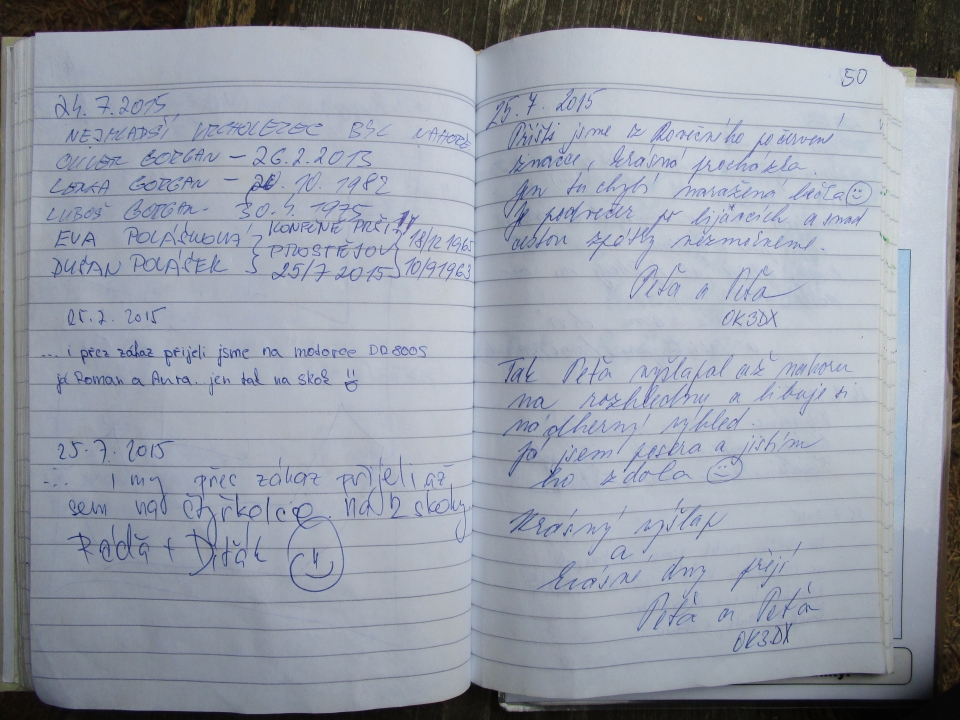 24.7.2015
NEJMLADŠÍ VRCHOLEZEC BYL NAHOŘE
OLIVER GORGAN – 26.2.2015
LENKA GORGAN – 20.10.1982
LUBOŠ GORGAN - 30.4.1975
EVA POLÁŠKOVÁ } KONEČNĚ PŘIŠLI } 18/12 1965
DUŠAN POLÁŠEK } PROSTĚJOV 25/7 2015 } 10/9 1963
25.7. 2015
... i přez zákaz přijeli jsme na motorce DR 800S
já Roman a Anra. jen tak na skok
25.7.2015
... i my přes zákaz přijeli až
sem na čtyřkolce na 2 skoky
Ráďa + Diťák
50
25.7. 2015
Přišli jsme z Rovečného po červené
značce, krásná procházka.
Jen tu chybí naražená bečka
Je podvečer po lijácích a snad
cestou zpátky nezmokneme.
Péťa a Péťa
OK3DX
Tak Péťa vyšlapal až nahoru
na rozhlednu a libuje si
nádherný výhled.
Já jsem posera a jistím
ho zdola
Krásný výšlap
a
krásné dny přejí
Péťa a Péťa
OK3DX